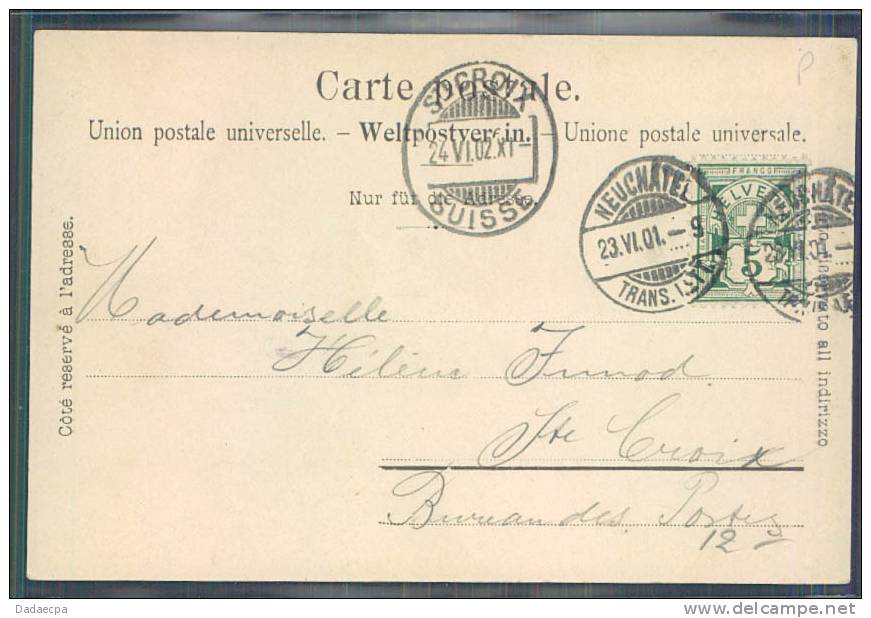 P
Carte postale.
Union postale universelle. – Weltpostverein. – Unione postale universale.
Nur für die Adresse.
STE CROIX
24 VI.02.XI–
SUISSE
NEUCHÂTEL
23.VI.01.–9
TRANS.
FRANCO
HELVETIA
5
Côté reservé à l'adresse.
all indirizzo
Mademoiselle
Hélène Junod
Ste Croix
Bureau des Postes
12
Dadaecpa
www.delcampe.net